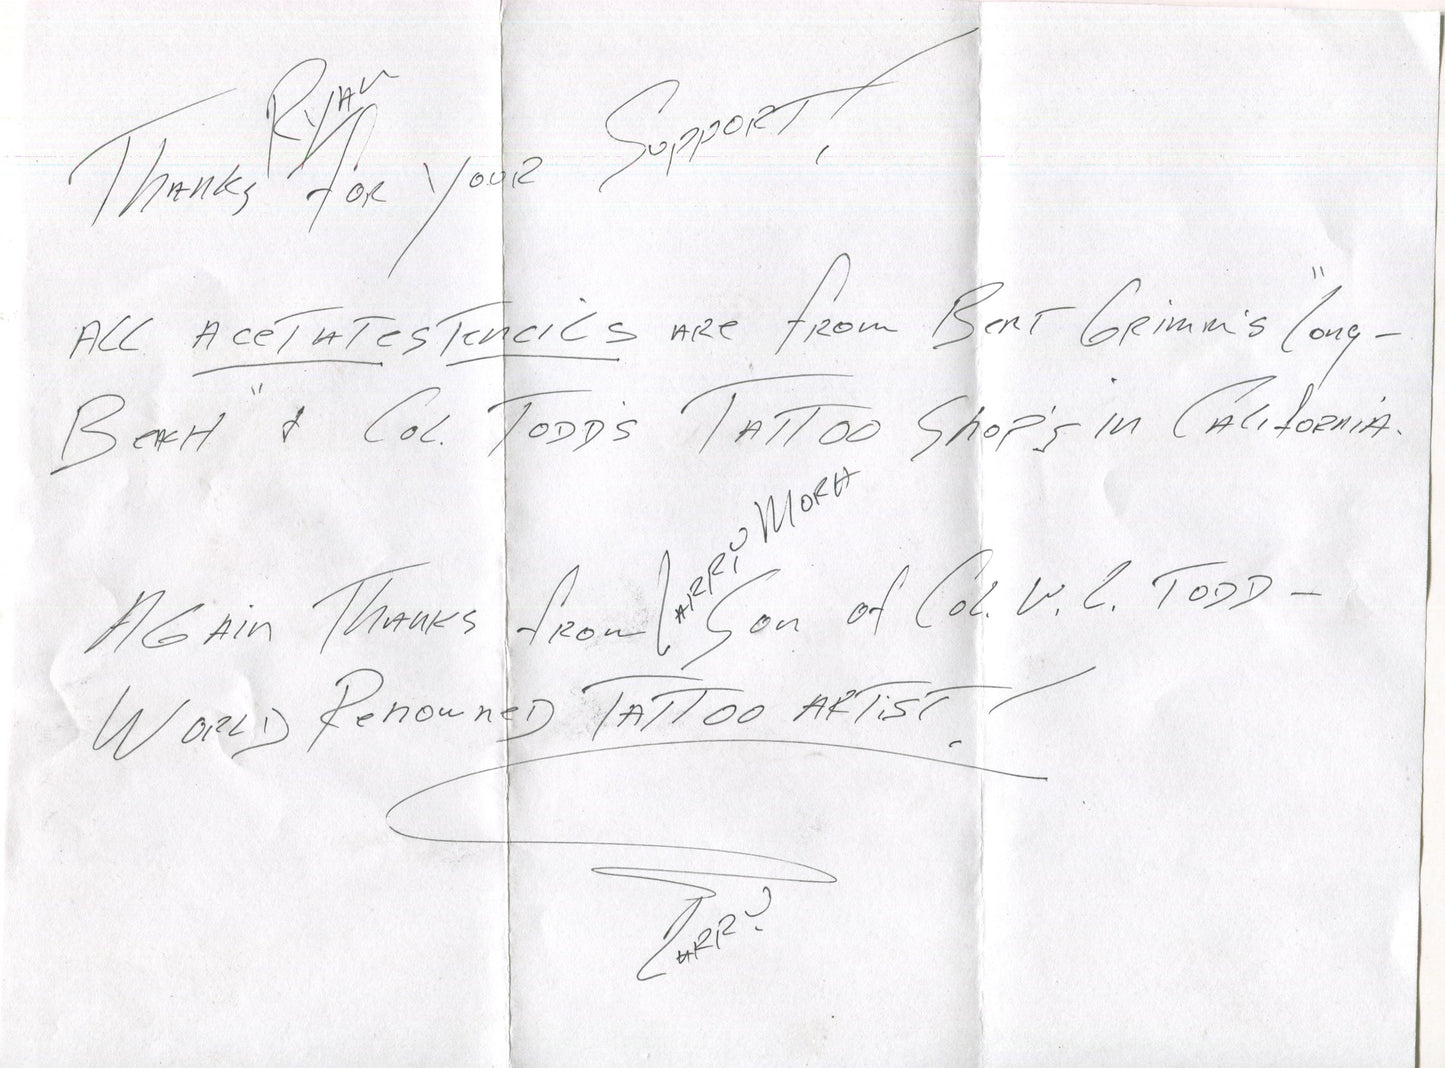 Ryan
Thanks for your Support!
All acetate stencils are from Bert Grimm's "Long-
Beach" & Col. Todd's Tattoo Shop's in California.
Larry Mora
Again Thanks from Son of Col. W. L. Todd -
World Renowned Tattoo Artist!
Larry